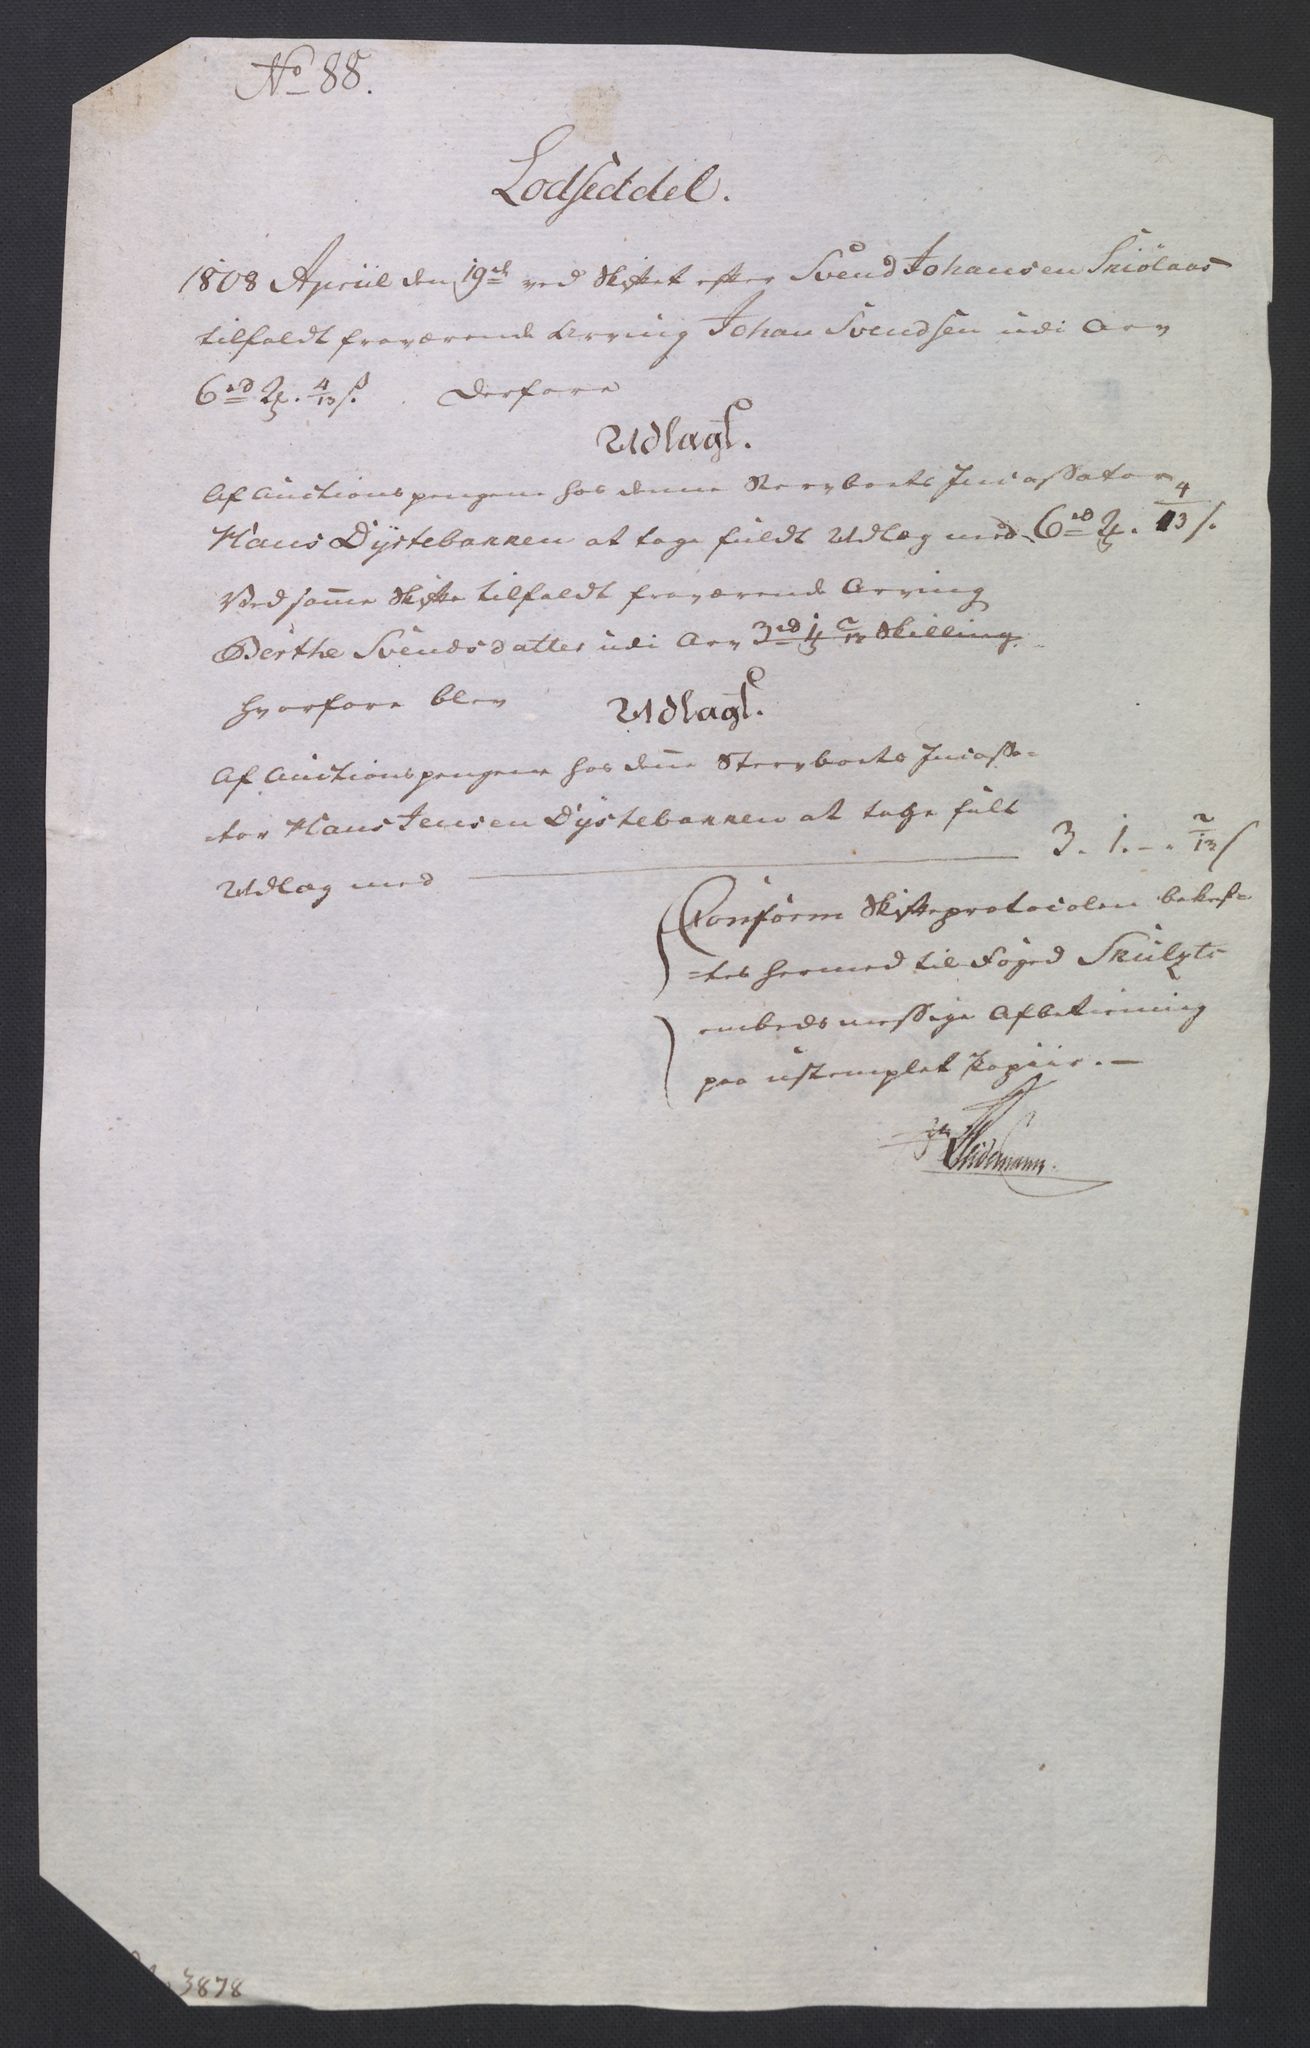 No 88.
Lodseddel.
1808 Apriil den 19de ved Skiftet efter Svend Johansen Skiölaas
tilfaldt fraværende Arving Johan Svendsen udi Arv
6rd 2 . 4/13 s. derfore
Udlagt.
Af Auctionspengene hos denne Stervboets Incassator
Hans Dÿstebakken at tage fuldt Udlæg med 6rd 2 . 4/13 s.
Ved samme Skifte tilfaldt fraværende Arving
Berthe Svendsdatter udi Arv 3rd 1 2/13 Skilling.
hvorfore blev Udlagt.
Af Auctionspengene hos denne Stervboets Incassa=
=tor Hans Jensen Dÿstebakken at tage fult
Udlæg med 3. 1. - . 2/13 s
Conform Skifteprotocolen bekref=
=tes hermed til Foged
embedsmessige Afbetiening
paa ustemplet Papiir. —
3878